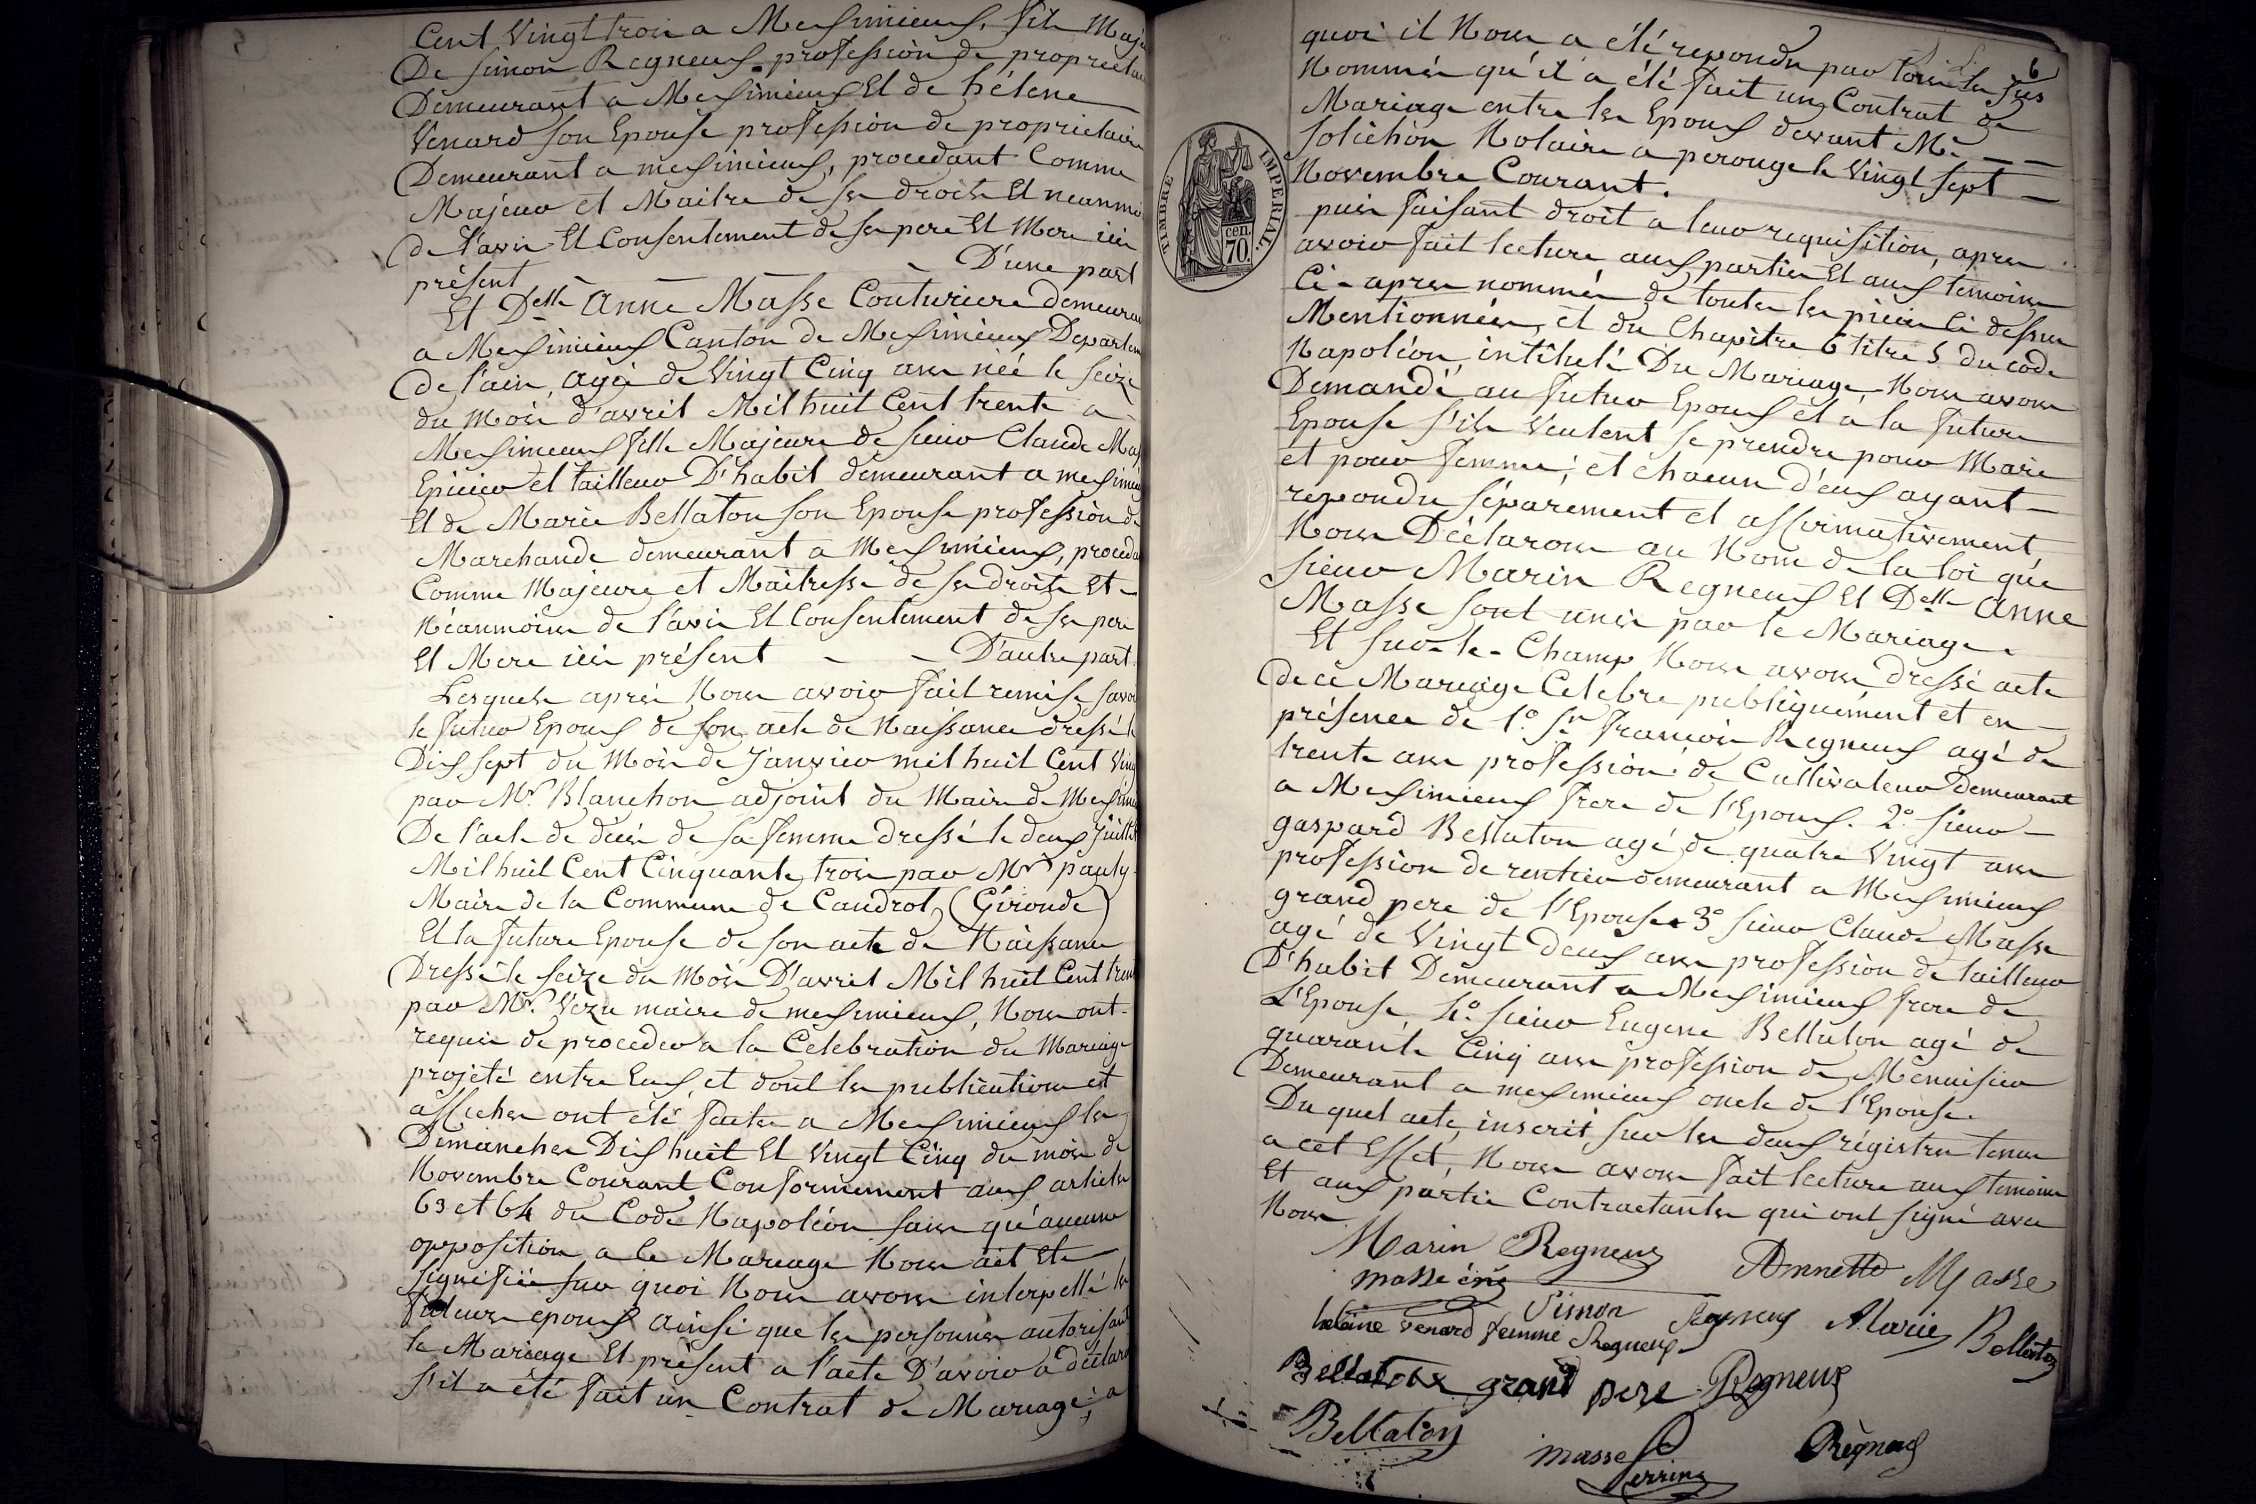 Cent Vingt trois a Meximieux, fils Maj
De simon Regneux profession de propriétai
Demeurant a Meximieux Et de hélene
Venard son Epouse profession de propriétaire
Demeurant a meximieux, procedant Comme
Majeur et Maitre de ses droits Et neanmo
de l'avis Et Consentement de ses pere Et Mere ici
présent D'une part
Et Delle Anne Masse Couturiere demeuran
a Meximieux Canton de Meximieux Départem
de l'ain, agée de Vingt Cinq ans née le seize
du Mois d'avril Mil huit Cent trente a
Meximieux fille Majeure de sieur Claude Mas
Epicier et tailleur D'habit demeurant a meximieu
Et de Marie Bellaton son Epouse profession de
Marchande demeurant a Meximieux, procéda
Comme Majeure et Maîtresse de ses droits Et
Néanmoins de l'avis Et Consentement de ses pere
Et Mere ici présent D'autre part.
Lesquels après Nous avoir fait remise savoi
le futur Epoux de son acte de Naissance dressé le
Dix sept du Mois de Janvier mil huit Cent Ving
par Mr. Blanchon adjoint du Maire de Meximie
De l'acte de décès de sa femme dressé le deux Juillet
Mil huit Cent Cinquante trois par Mr pauly
Maire de la Commune de Caudrot, (Gironde)
Et la future Epouse de son acte de Naissance
Dressé le seize du Mois D'avril Mil huit Cent trent
par Mr. Vezu maire de meximieux, Nous ont
requis de proceder a la Celebration du Mariage
projeté entre Eux et dont les publications et
affiches ont été faites a Meximieux les
Dimanches Dix huit Et Vingt Cinq du mois de
Novembre Courant Conformement aux articles
63 et 64 du Code Napoléon sans qu'aucune
opposition a ce Mariage Nous ait Eté
signifiée sur quoi Nous avons interpellé les
futurs epoux ainsi que les personnes autorisant
le Mariage Et présent a l'acte D'avoir a déclare
s'il a été fait un Contrat de Mariage; a
6
quoi il Nous a été repondu par tous les sus
Nommés qu'il a été fait un Contrat de
Mariage entre les Epoux devant Me
Solichon Notaire a perouge le Vingt sept
Novembre Courant.
puis faisant droit a leur requisition, apres
avoir fait lecture aux parties Et aux temoins
Ci-apres nommés de toutes les pieces Ci dessus
Mentionnées, et du Chapitre 6 titre 5 du code
Napoléon, intitulé Du Mariage, Nous avons
Demandé au futur Epoux et a la future
Epouse s'ils Veulent se prendre pour Mari
et pour femme; et chacun d'eux ayant
repondu séparement et affirmativement,
Nous Déclarons au Nom de la loi que
sieur Marin Regneux Et Delle Anne
Masse sont unis par le Mariage.
Et sur-le-Champ Nous avons dressé acte
de ce Mariage Celebré publiquement et en
présence de 1° Sr francois Regneux agé de
trente ans profession de Cultivateur Demeurant
a Meximieux frere de l'Epoux. 2° sieur
gaspard Bellaton agé de quatre Vingt ans
profession de rentier demeurant a Meximieux
grand pere de l'Epouse 3° sieur Claude Masse
agé de Vingt Deux ans profession de tailleur
D'habit Demeurant a Meximieux frere de
L'Epouse 4° sieur Eugene Bellaton agé de
quarante Cinq ans profession de Menuisier
Demeurant a meximieux oncle de l'Epouse.
Du quel acte, inscrit sur les deux régistres tenus
a cet Effet, Nous avons fait lecture aux temoins
Et aux partie Contractantes qui ont signé avec
Nous
Marin Regneux Annette Masse
masse éné
Simon Regneux Marie Bellaton
helène venard femme Regneux
Bellaton grand pere Regneux
Bellaton masse Regneux
Perrine
TIMBRE IMPERIAL.
cen.
70.